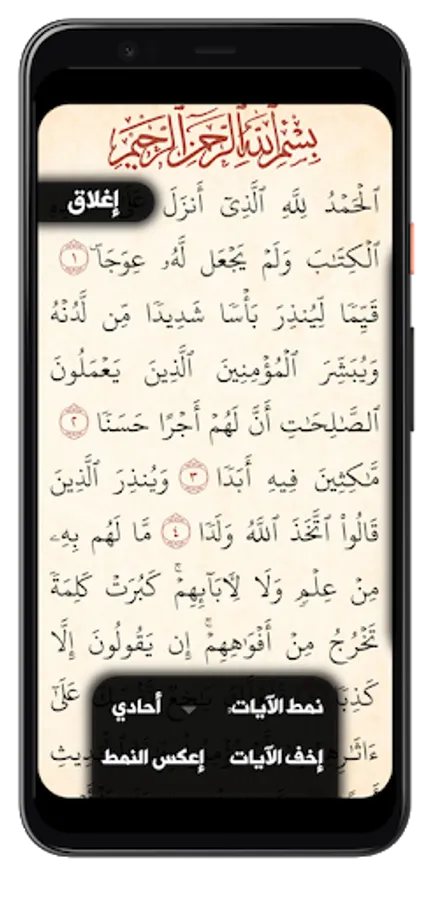 بِسْمِ ٱللَّهِ ٱلرَّحْمَٰنِ ٱلرَّحِيمِ
ٱلْحَمْدُ لِلَّهِ ٱلَّذِىٓ أَنزَلَ
إغلاق
ٱلْكِتَٰبَ وَلَمْ يَجْعَل لَّهُۥ عِوَجَاۜ ١
قَيِّمًا لِّيُنذِرَ بَأْسًا شَدِيدًا مِّن لَّدُنْهُ
وَيُبَشِّرَ ٱلْمُؤْمِنِينَ ٱلَّذِينَ يَعْمَلُونَ
ٱلصَّٰلِحَٰتِ أَنَّ لَهُمْ أَجْرًا حَسَنًا ٢
مَّٰكِثِينَ فِيهِ أَبَدًا ٣ وَيُنذِرَ ٱلَّذِينَ
قَالُوا۟ ٱتَّخَذَ ٱللَّهُ وَلَدًا ٤ مَّا لَهُم بِهِۦ
مِنْ عِلْمٍ وَلَا لِءَابَآئِهِمْ ۚ كَبُرَتْ كَلِمَةً
تَخْرُجُ مِنْ أَفْوَٰهِهِمْ ۚ إِن يَقُولُونَ إِلَّا
عَلَىٰٓ
نمط الآيات: أحادي
إخف الآيات إعكس النمط